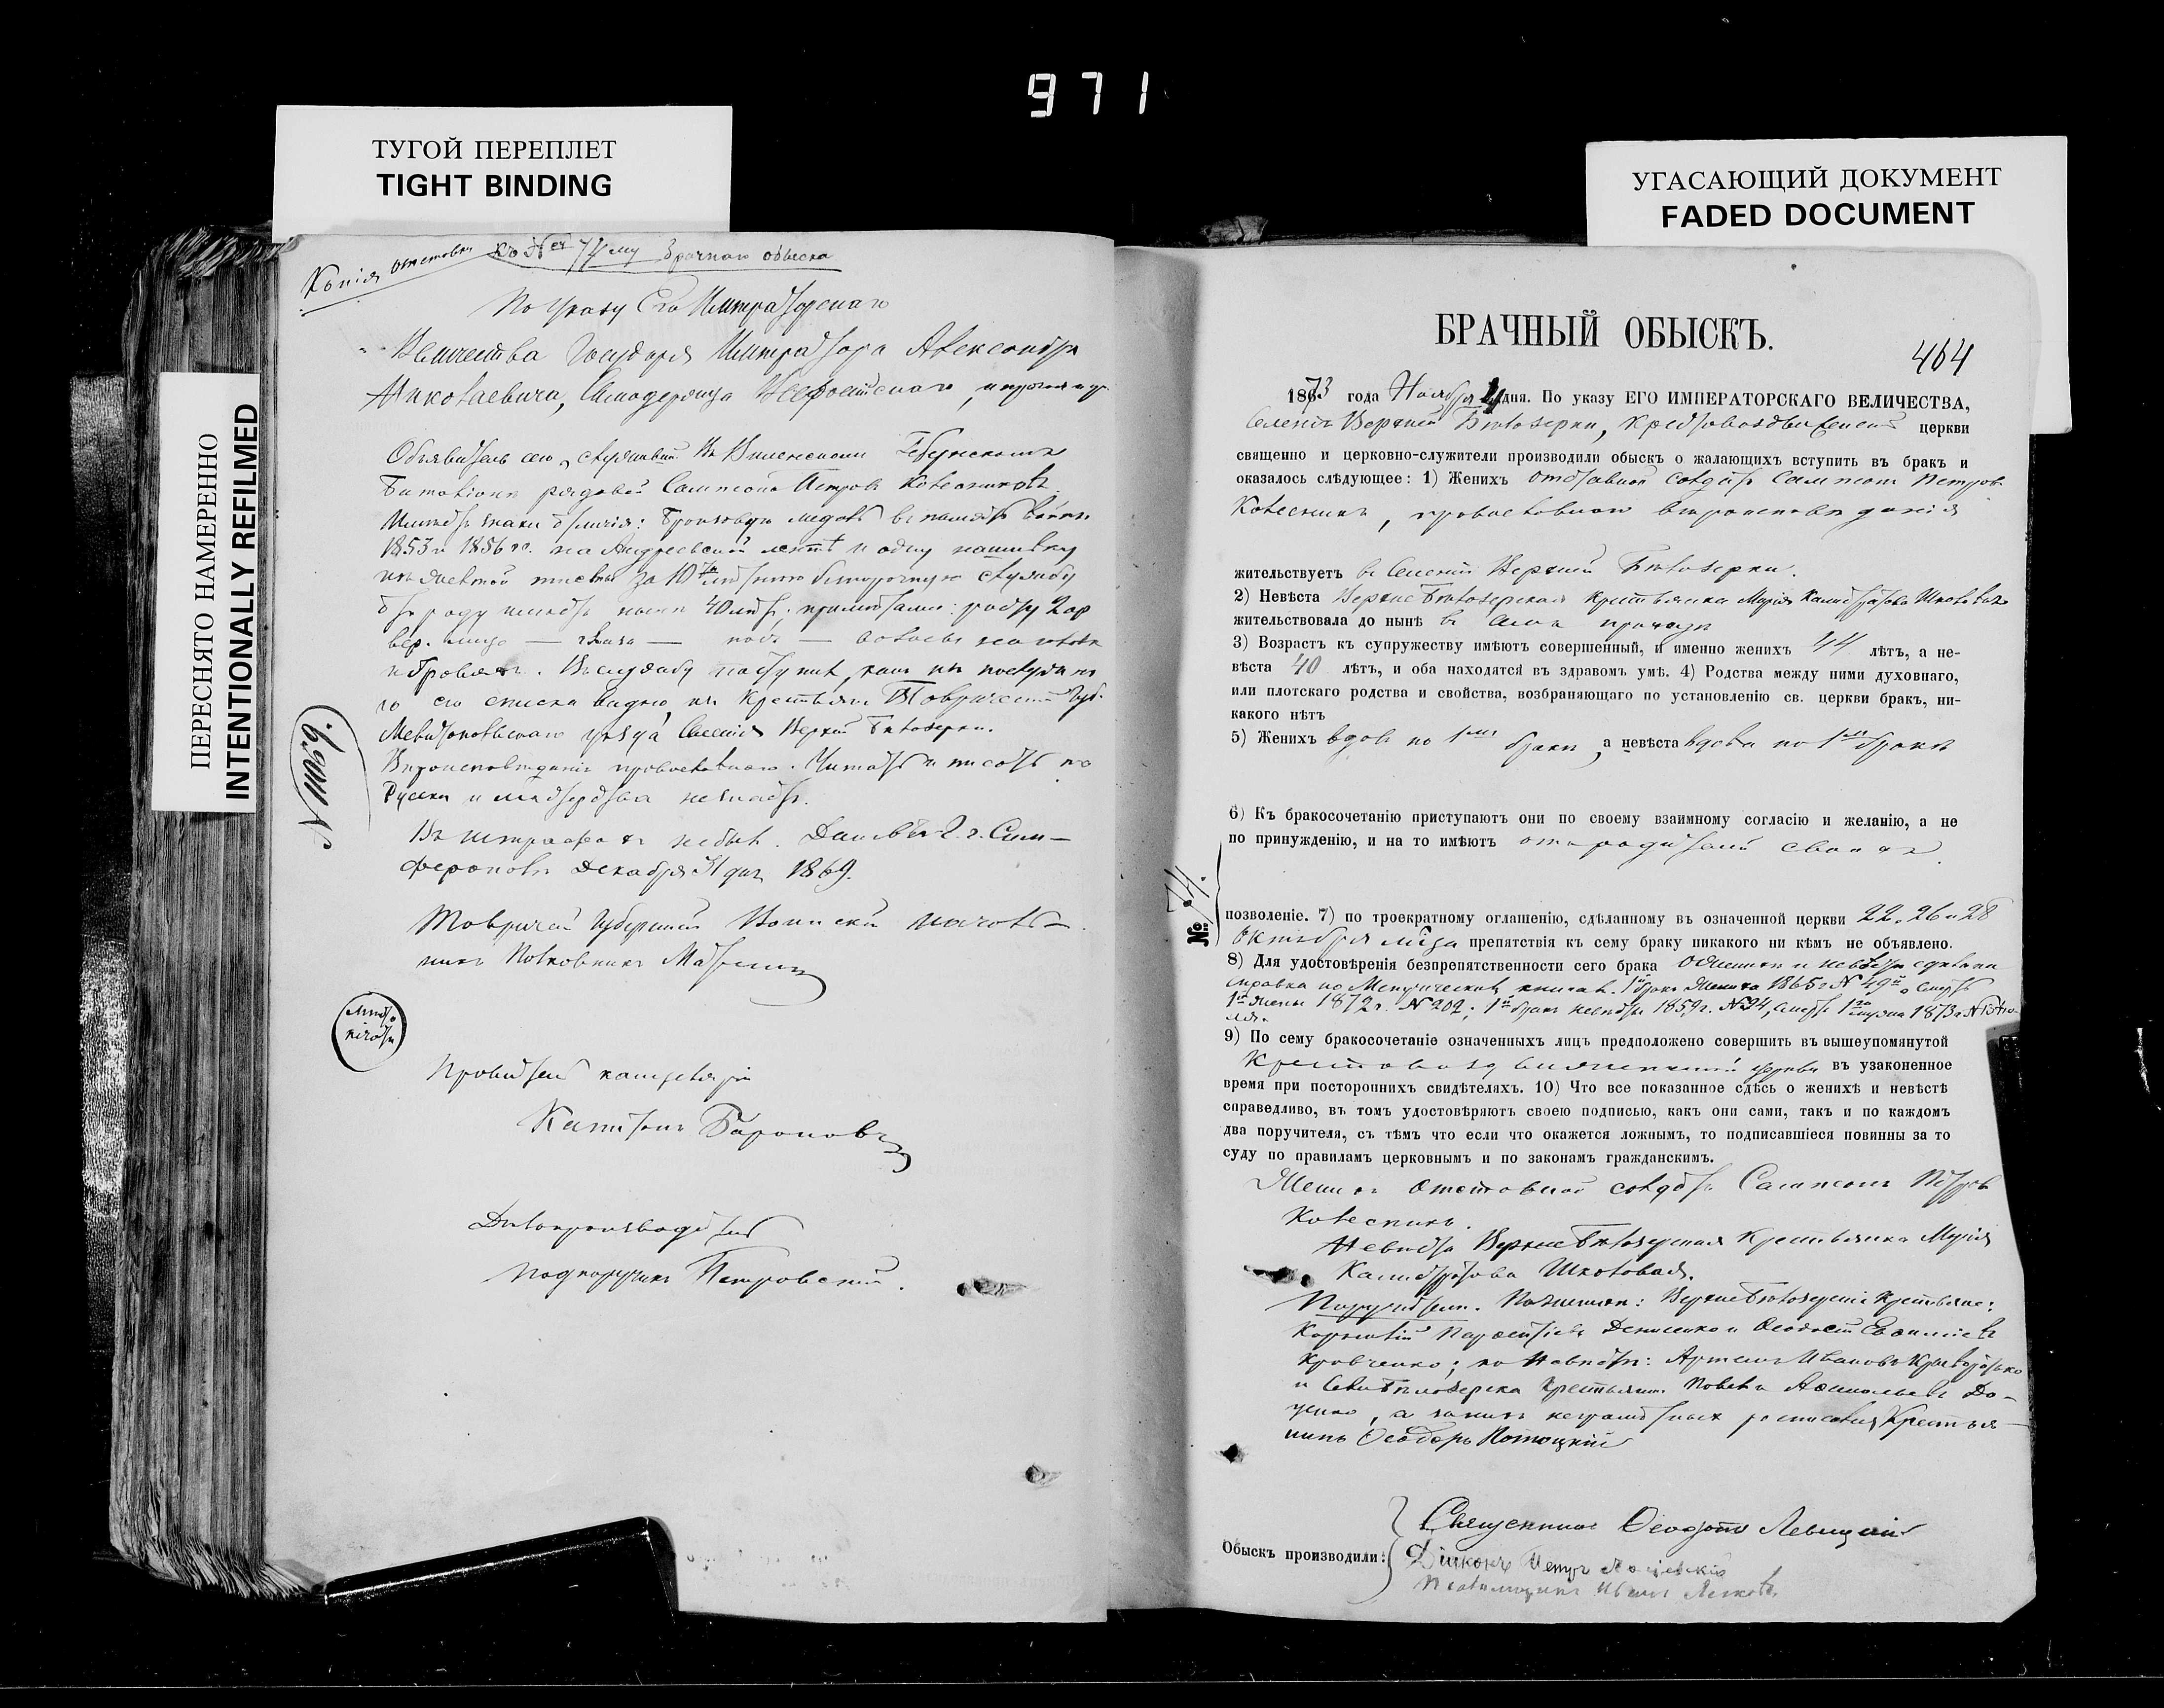 971
ТУГОЙ ПЕРЕПЛЕТ
TIGHT BINDING
УГАСАЮЩИЙ ДОКУМЕНТ
FADED DOCUMENT
ПЕРЕСНЯТО НАМЕРЕННО
INTENTIONALLY REFILMED
Копія отставки къ № 74му брачнаго обыска
По Указу Его Императорскаго
Величества Государя Императора Александра
Николаевича, Самодержца Всероссійскаго, и прочая и пр.
Объявитель сего, служившій въ Виленскомъ Губернскомъ
баталіонѣ рядовой Сампсонъ Петровъ Колесниковъ.
Имѣетъ знаки отличія: бронзовую медаль въ память войны
1853 и 1856 гг. на Андреевской лентѣ и одну нашивку
изъ желтой тесьмы за 10ти лѣтнюю безпорочную службу
отъ роду имѣетъ нынѣ 40 лѣтъ; примѣтами: росту 2 ар
вер. лицо — глаза — носъ — волосы на головѣ
и бровяхъ. Въ службу поступилъ, какъ изъ послужна
го его списка видно, изъ крестьянъ Таврической Губ.
Мелитопольскаго уѣзда Селенія Верхней Бѣлозерки.
Вѣроисповѣданія православнаго. Читать и писать по
Русски и мастерства не знаетъ.
Въ штрафахъ не былъ. Данъ въ г. Сим-
ферополѣ Декабря 31 дня 1869.
Таврической Губернскій Воинскій Началь-
никъ Полковникъ
Правитель канцеляріи
Капитанъ Бароновъ
Дѣлопроизводитель
Подпоручикъ Петровскій.
БРАЧНЫЙ ОБЫСКЪ.
464
1873 года Ноября 4 дня. По указу ЕГО ИМПЕРАТОРСКАГО ВЕЛИЧЕСТВА,
Селенія Верхней Бѣлозерки, Крестовоздвиженской церкви
священно и церковно-служители производили обыскъ о жалающихъ вступить въ бракъ и
оказалось слѣдующее: 1) Женихъ отставной солдатъ Сампсонъ Петровъ
Колесникъ, православнаго вѣроисповѣданія
жительствуетъ въ Селеніи Верхней Бѣлозерки.
2) Невѣста Верхнебѣлозерская крестьянка Марія Калистратова Школовая
жительствовала до нынѣ въ семъ приходѣ
3) Возрастъ къ супружеству имѣютъ совершенный, и именно женихъ 44 лѣтъ, а не-
вѣста 40 лѣтъ, и оба находятся въ здравомъ умѣ. 4) Родства между ними духовнаго,
или плотскаго родства и свойства, возбраняющаго по установленію св. церкви бракъ, ни-
какого нѣтъ
5) Женихъ вдовъ по 1мъ бракѣ, а невѣста вдова по 1мъ бракѣ
6) Къ бракосочетанію приступаютъ они по своему взаимному согласію и желанію, а не
по принужденію, и на то имѣютъ отъ родителей своихъ
№ 74.
позволеніе. 7) по троекратному оглашенію, сдѣланному въ означенной церкви 22, 26 и 28
Октября м-ца препятствія къ сему браку никакого ни кѣмъ не объявлено.
8) Для удостовѣренія безпрепятственности сего брака о женихѣ и невѣстѣ сдѣлана
справка по Метрическимъ книгамъ. 1й бракъ Жениха 1865 г. № 49й, смерть
1й жены 1872 г. № 202; 1й бракъ невѣсты 1859 г. № 24, смерть 1го мужа 1873 г. №
9) По сему бракосочетаніе означенныхъ лицъ предположено совершить въ вышеупомянутой
Крестовоздвиженской церкви въ узаконенное
время при постороннихъ свидѣтеляхъ. 10) Что все показанное сдѣсь о женихѣ и невѣстѣ
справедливо, въ томъ удостовѣряютъ своею подписью, какъ они сами, такъ и по каждомъ
два поручителя, съ тѣмъ что если что окажется ложнымъ, то подписавшіеся повинны за то
суду по правиламъ церковнымъ и по законамъ гражданскимъ.
Женихъ отставной солдатъ Сампсонъ Петровъ
Колесникъ.
Невѣста Верхнебѣлозерская Крестьянка Марія
Калистратова Школовая.
Поручители. По женихѣ: Верхнебѣлозерскіе Крестьяне:
Корнилій Парфентіевъ Денисенко и Феодосій Евфиміевъ
Кравченко; по Невѣстѣ: Артемъ Ивановъ
и Села Бѣлозерка крестьянинъ Павелъ До-
ценко, а за нихъ неграмотныхъ росписался Крестья-
нинъ Феодоръ Потоцкій
Обыскъ производили: Священникъ Феодотъ Левицкій
Діаконъ Петръ
Псаломщикъ Иванъ